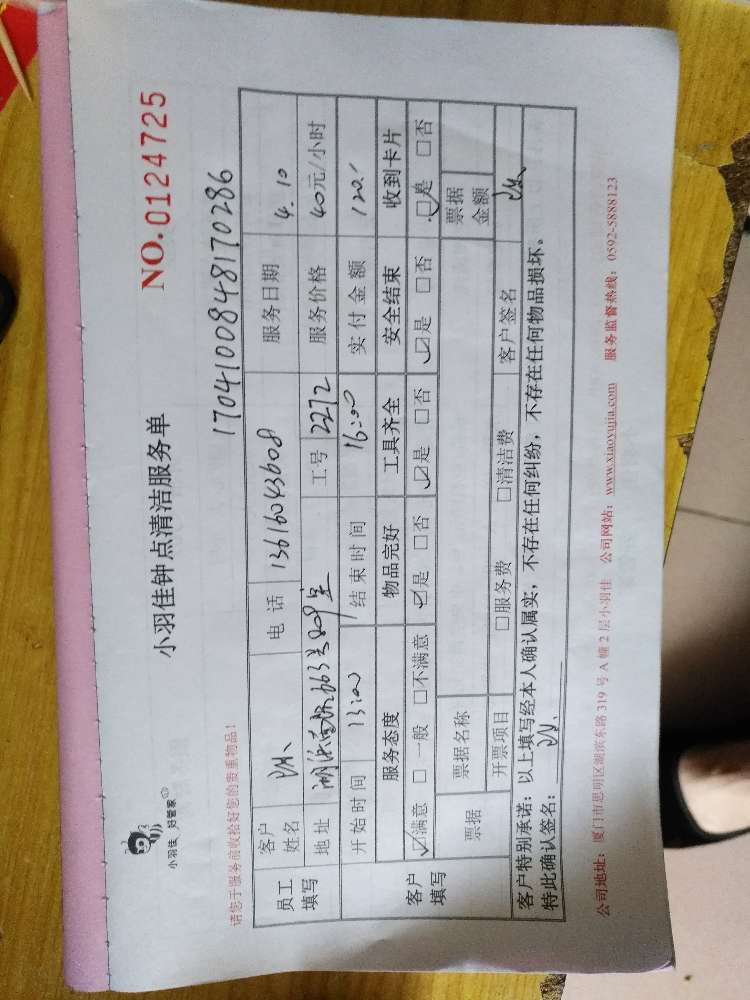 小羽佳 好管家
小羽佳钟点清洁服务单
NO.0124725
1704100848170286
请您于服务前收拾好您的贵重物品！
员工填写 客户姓名 电话 13616043608 服务日期 4.10
地址 663 809室 工号 2272 服务价格 40元/小时
开始时间 13:00 结束时间 16:00 实付金额 120.
客户填写 服务态度 物品完好 工具齐全 安全结束 收到卡片
☑满意 □一般 □不满意 ☑是 □否 ☑是 □否 ☑是 □否 ☑是 □否
票据 票据名称 票据金额
开票项目 □服务费 □清洁费 客户签名
客户特别承诺：以上填写经本人确认属实，不存在任何纠纷，不存在任何物品损坏。
特此确认签名：
公司地址：厦门市思明区湖滨东路 319 号 A 幢 2 层小羽佳 公司网站：www.xiaoyujia.com 服务监督热线：0592-5888123